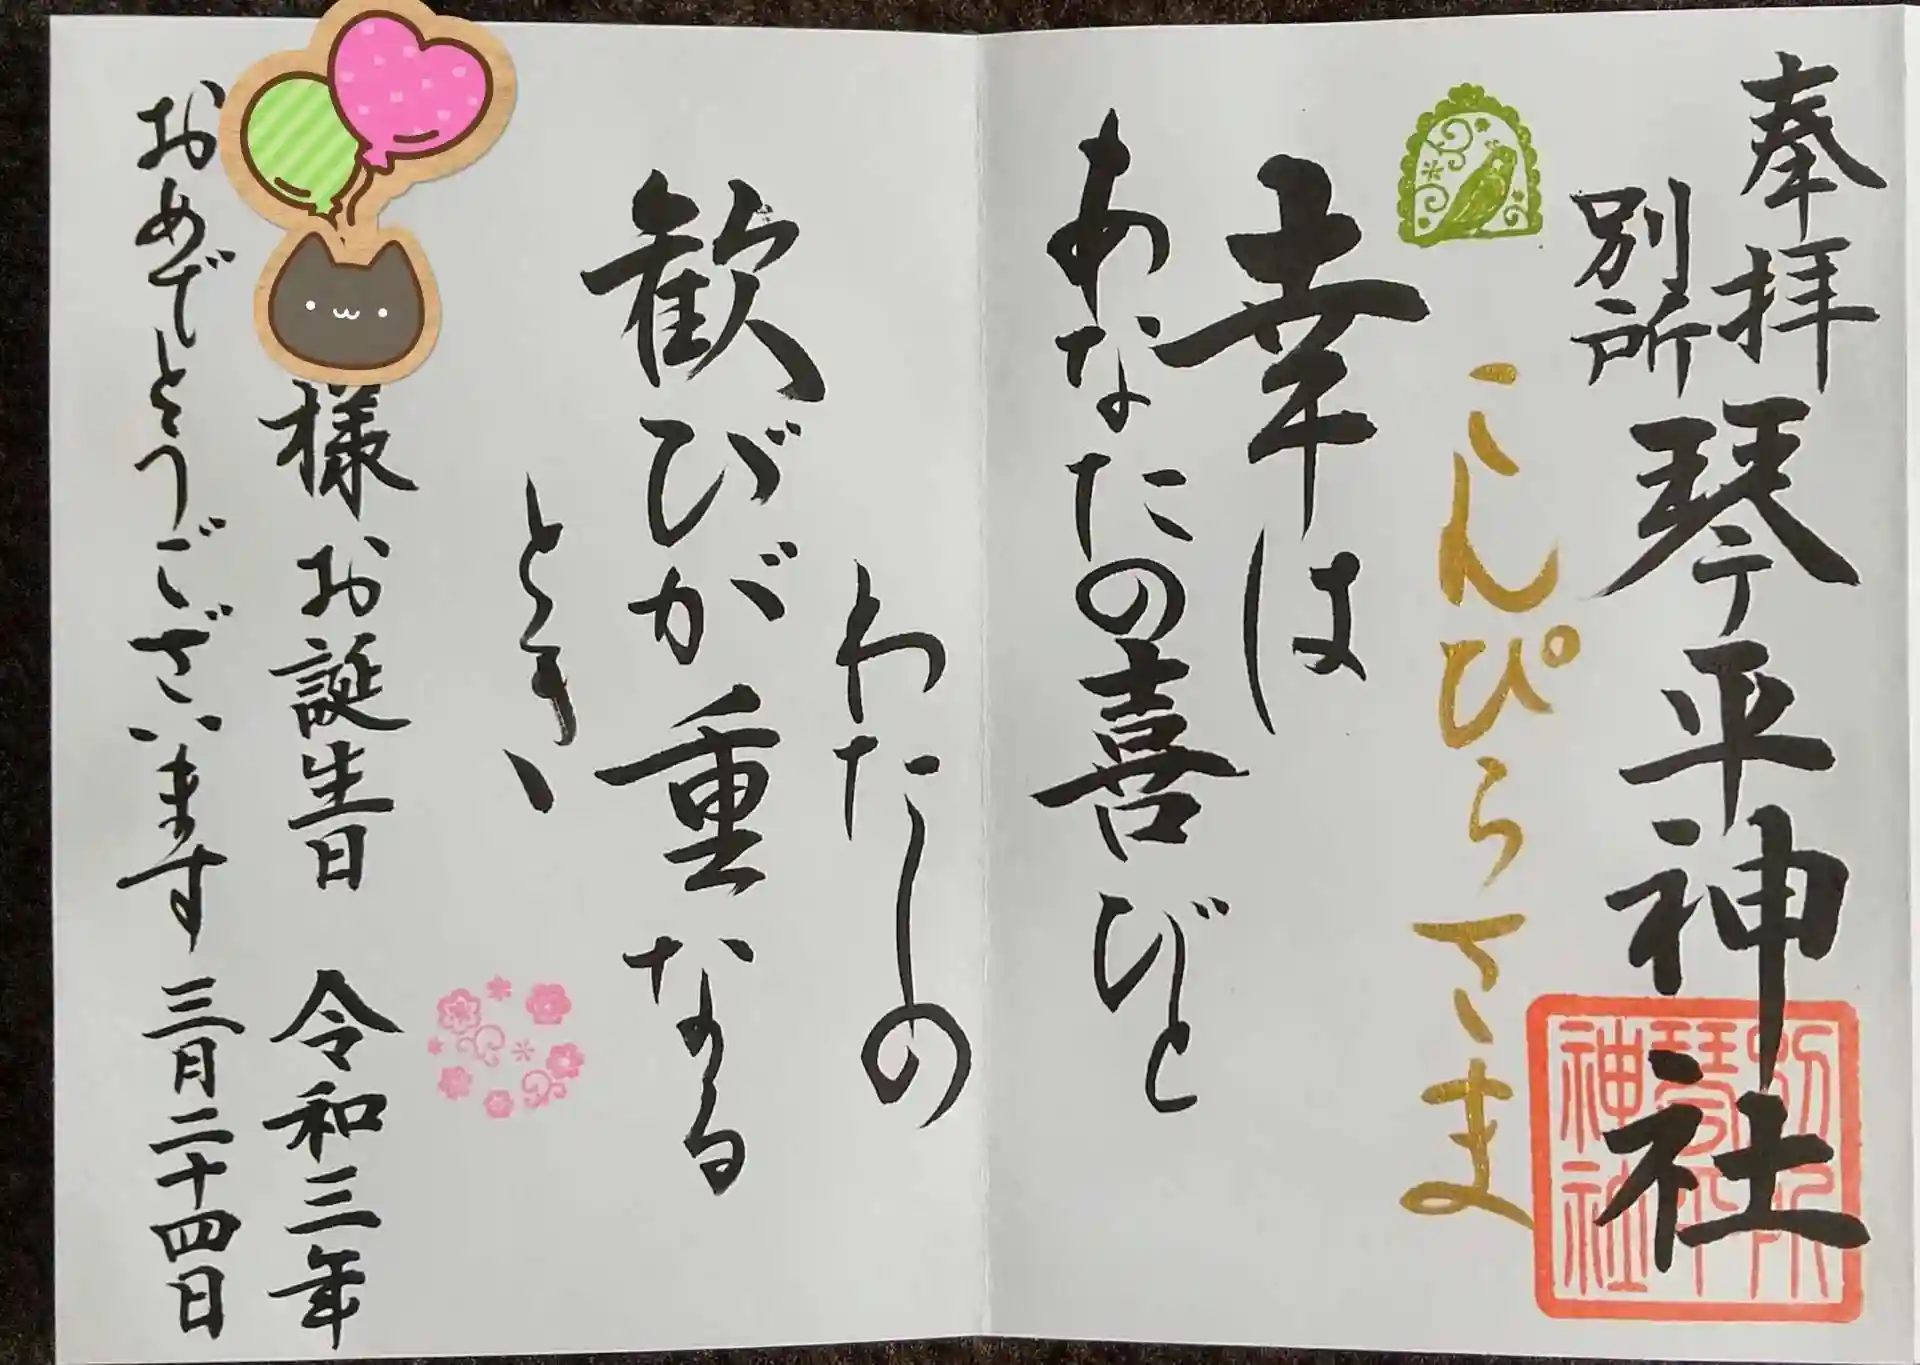 奉拝
別所
琴平神社
こんぴらさま
幸は
あなたの喜びと
わたしの
歓びが重なる
とき、
様 お誕生日 令和三年
おめでとうございます 三月二十四日
別所琴平神社